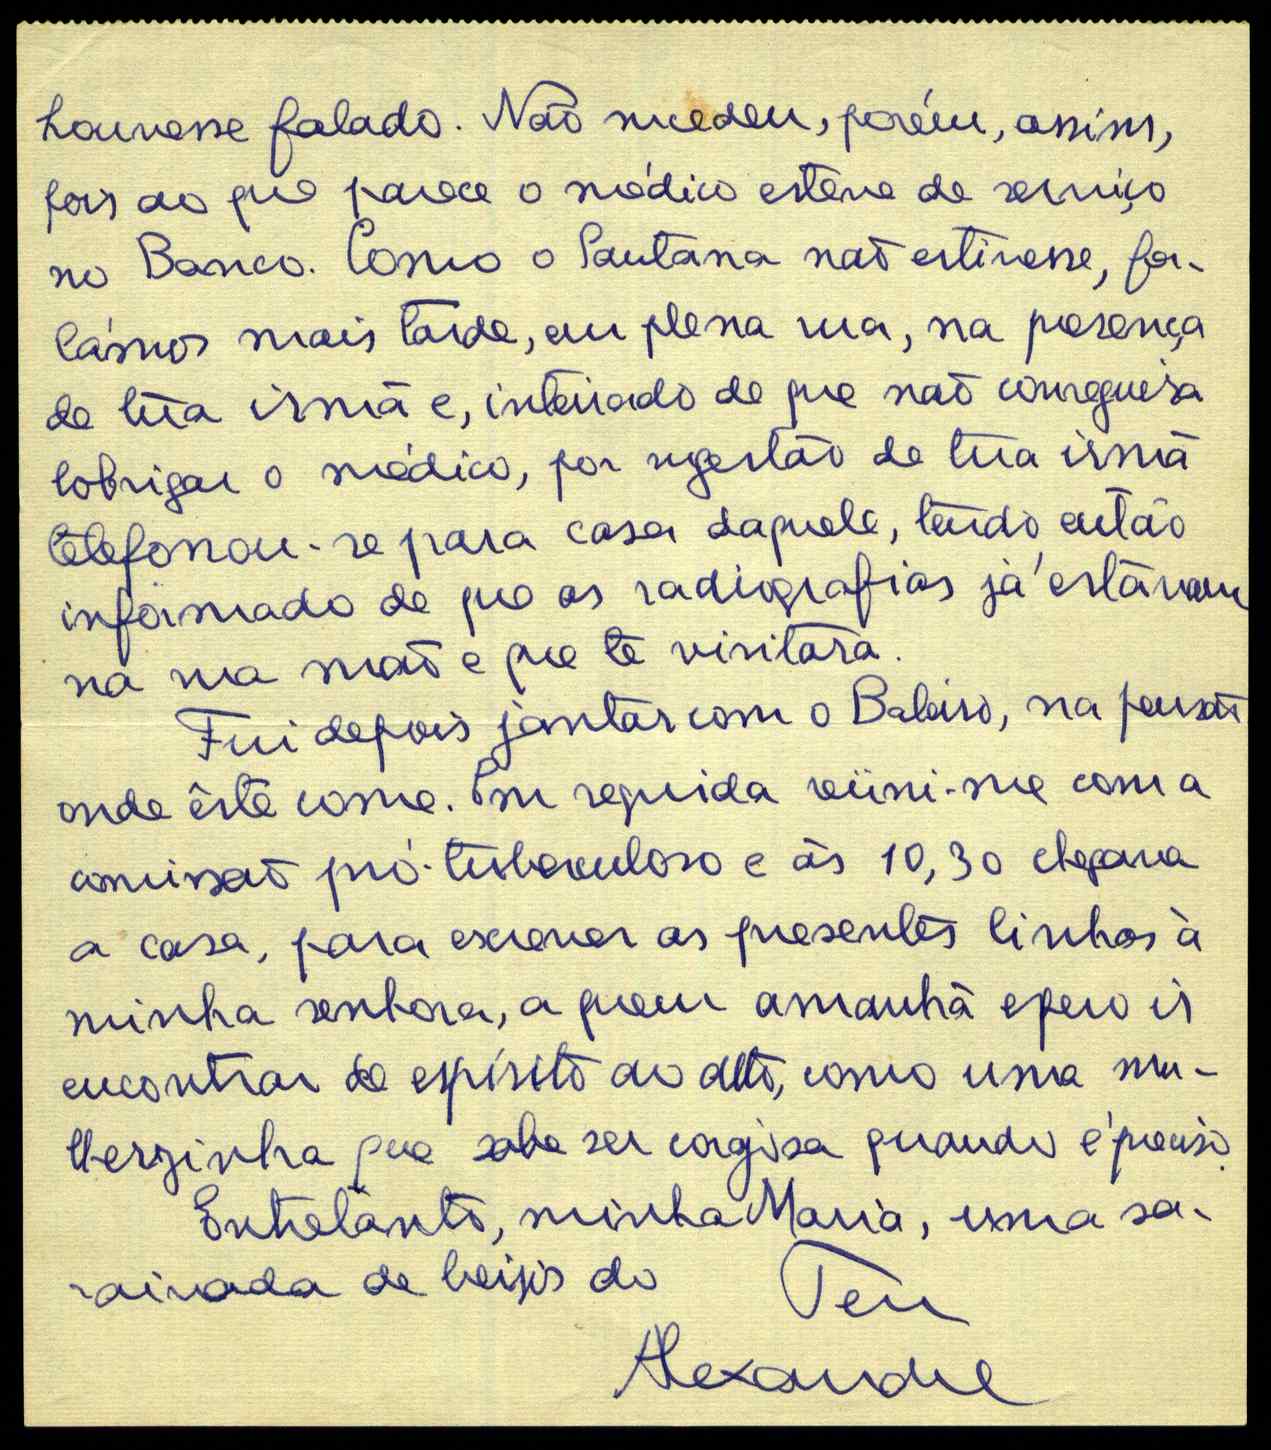 houvesse falado. Não sucedeu, porém, assim,
pois ao que parece o médico esteve de serviço
no Banco. Como o Santana não estivesse, fa-
lámos mais tarde, em plena rua, na presença
de tua irmã e, inteirado de que não conseguira
lobrigar o médico, por sugestão de tua irmã
telefonou-se para casa daquele, tendo então
informado de que as radiografias já estavam
na sua mão e que te visitara.
Fui depois jantar com o Baleiro, na pensão
onde êste come. Em seguida reüni-me com a
comissão pró-tuberculoso e às 10,30 chegava
a casa, para escrever as presentes linhas à
minha senhora, a quem amanhã espero ir
encontrar de espírito ao alto, como uma mu-
lherzinha que sabe ser corajosa quando é preciso.
Entretanto, minha Maria, uma sa-
raivada de beijos do Teu
Alexandre